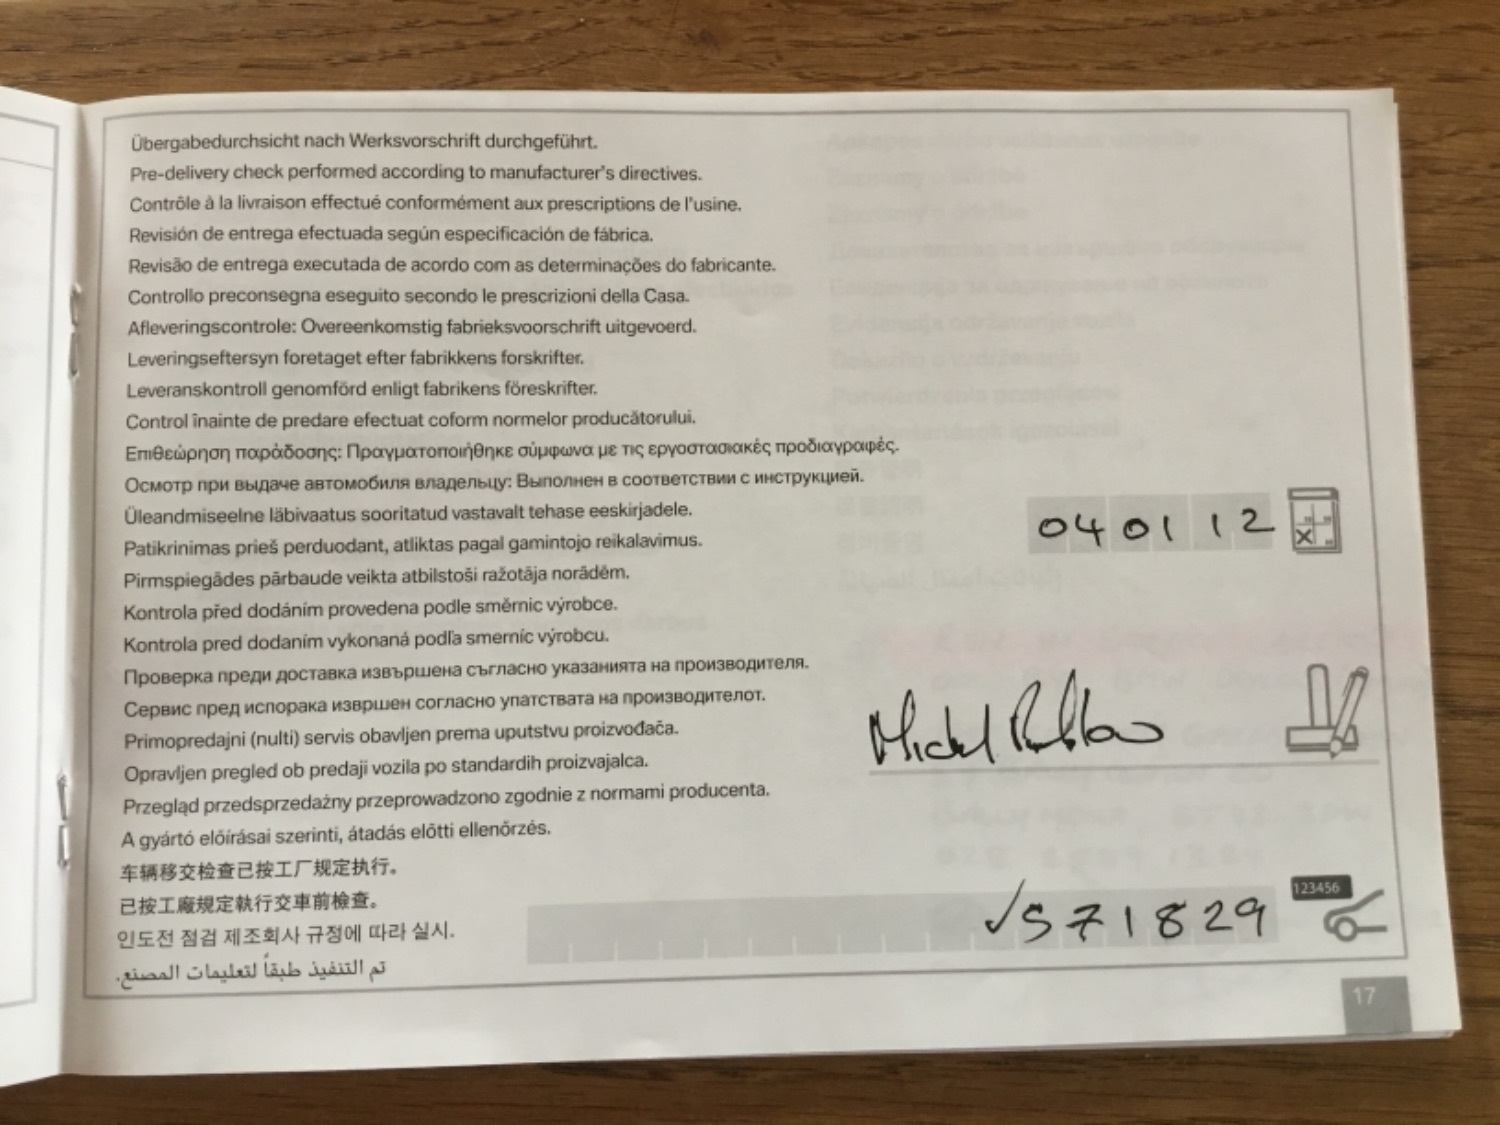 Übergabedurchsicht nach Werksvorschrift durchgeführt.
Pre-delivery check performed according to manufacturer's directives.
Contrôle à la livraison effectué conformément aux prescriptions de l'usine.
Revisión de entrega efectuada según especificación de fábrica.
Revisão de entrega executada de acordo com as determinações do fabricante.
Controllo preconsegna eseguito secondo le prescrizioni della Casa.
Afleveringscontrole: Overeenkomstig fabrieksvoorschrift uitgevoerd.
Leveringseftersyn foretaget efter fabrikkens forskrifter.
Leveranskontroll genomförd enligt fabrikens föreskrifter.
Control înainte de predare efectuat coform normelor producătorului.
Επιθεώρηση παράδοσης: Πραγματοποιήθηκε σύμφωνα με τις εργοστασιακές προδιαγραφές.
Осмотр при выдаче автомобиля владельцу: Выполнен в соответствии с инструкцией.
Üleandmiseelne läbivaatus sooritatud vastavalt tehase eeskirjadele.
Patikrinimas prieš perduodant, atliktas pagal gamintojo reikalavimus.
Pirmspiegādes pārbaude veikta atbilstoši ražotāja norādēm.
Kontrola před dodáním provedena podle směrnic výrobce.
Kontrola pred dodaním vykonaná podľa smerníc výrobcu.
Проверка преди доставка извършена съгласно указанията на производителя.
Сервис пред испорака извршен согласно упатствата на производителот.
Primopredajni (nulti) servis obavljen prema uputstvu proizvođača.
Opravljen pregled ob predaji vozila po standardih proizvajalca.
Przegląd przedsprzedażny przeprowadzono zgodnie z normami producenta.
A gyártó előírásai szerinti, átadás előtti ellenőrzés.
车辆移交检查已按工厂规定执行。
已按工廠規定執行交車前檢查。
인도전 점검 제조회사 규정에 따라 실시.
تم التنفيذ طبقاً لتعليمات المصنع.
040112
123456
✓571829
17